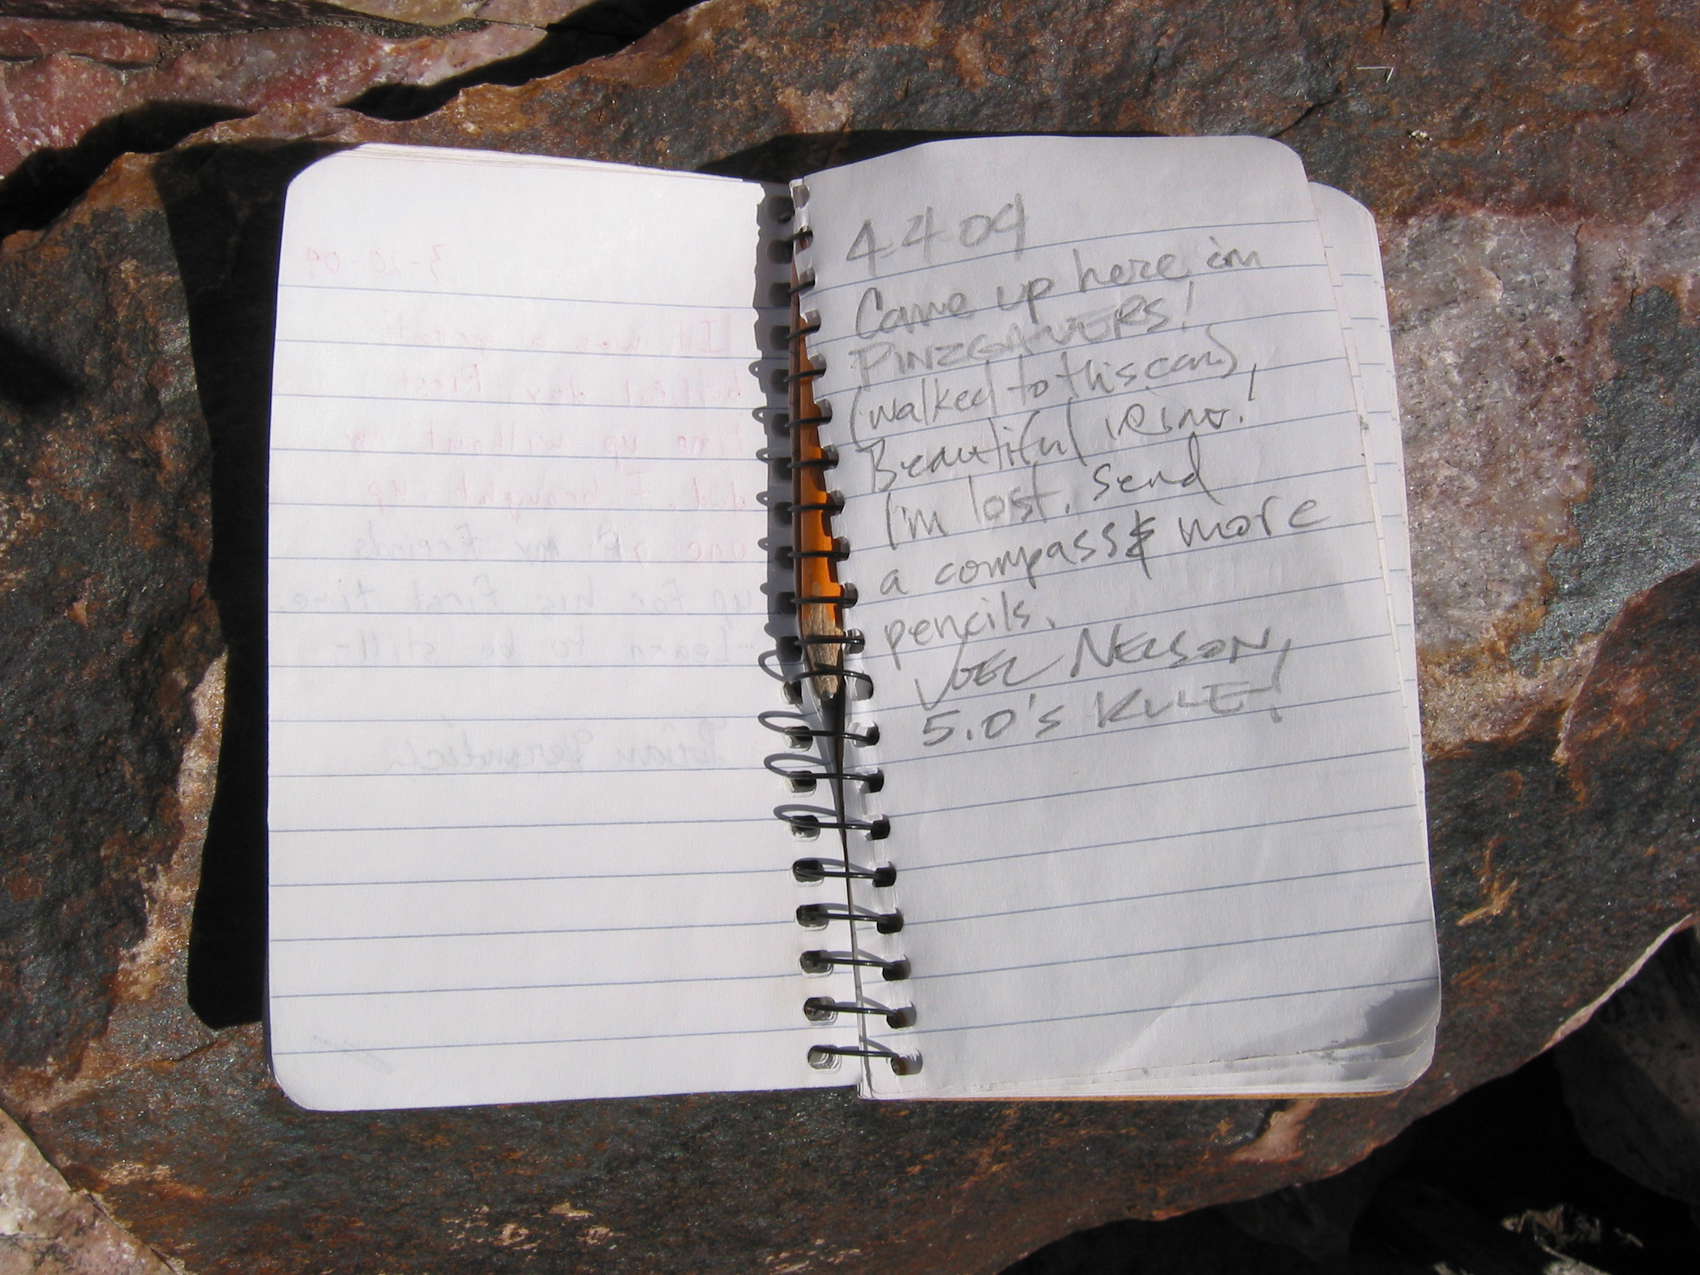 3-20-09
It was a
day First
time up without my
dad. I brought up
one of my friends
up for his first time.
-Learn to be still-
Brian
4 4 09
Came up here in
PINZGAUERS!
(walked to this can),
Beautiful
I'm lost. Send
a compass & more
pencils.
JOEL NELSON,
5.0's RULE!